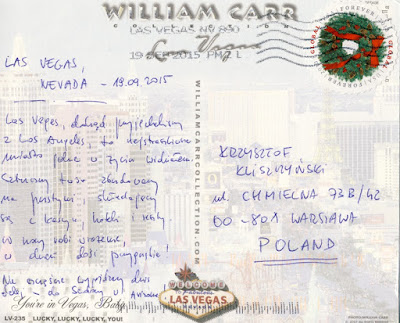 WILLIAM CARR
COLLECTION
Las Vegas
LAS VEGAS NV 890
19 SEP 2015 PM 2 L
FOREVER
GLOBAL
LAS VEGAS,
NEVADA - 19.09.2015
Las Vegas, dokąd przyjechaliśmy
z Los Angeles, to najstraszniejsze
miasto jakie w życiu widziałem.
Sztuczny twór zbudowany
na pustyni i składający
się z kasyn, hoteli i
w nocy robi wrażenie,
w dzień dość przygnębia!
Na szczęście wyjeżdżamy dziś
- do Sedony w Arizonie!
KRZYSZTOF
KLISZCZYŃSKI
ul. CHMIELNA 73B/42
00-801 WARSZAWA
POLAND
WILLIAMCARRCOLLECTION.COM
WELCOME
TO Fabulous
LAS VEGAS
NEVADA
You're in Vegas, Baby
LV-235 LUCKY, LUCKY, LUCKY, YOU!